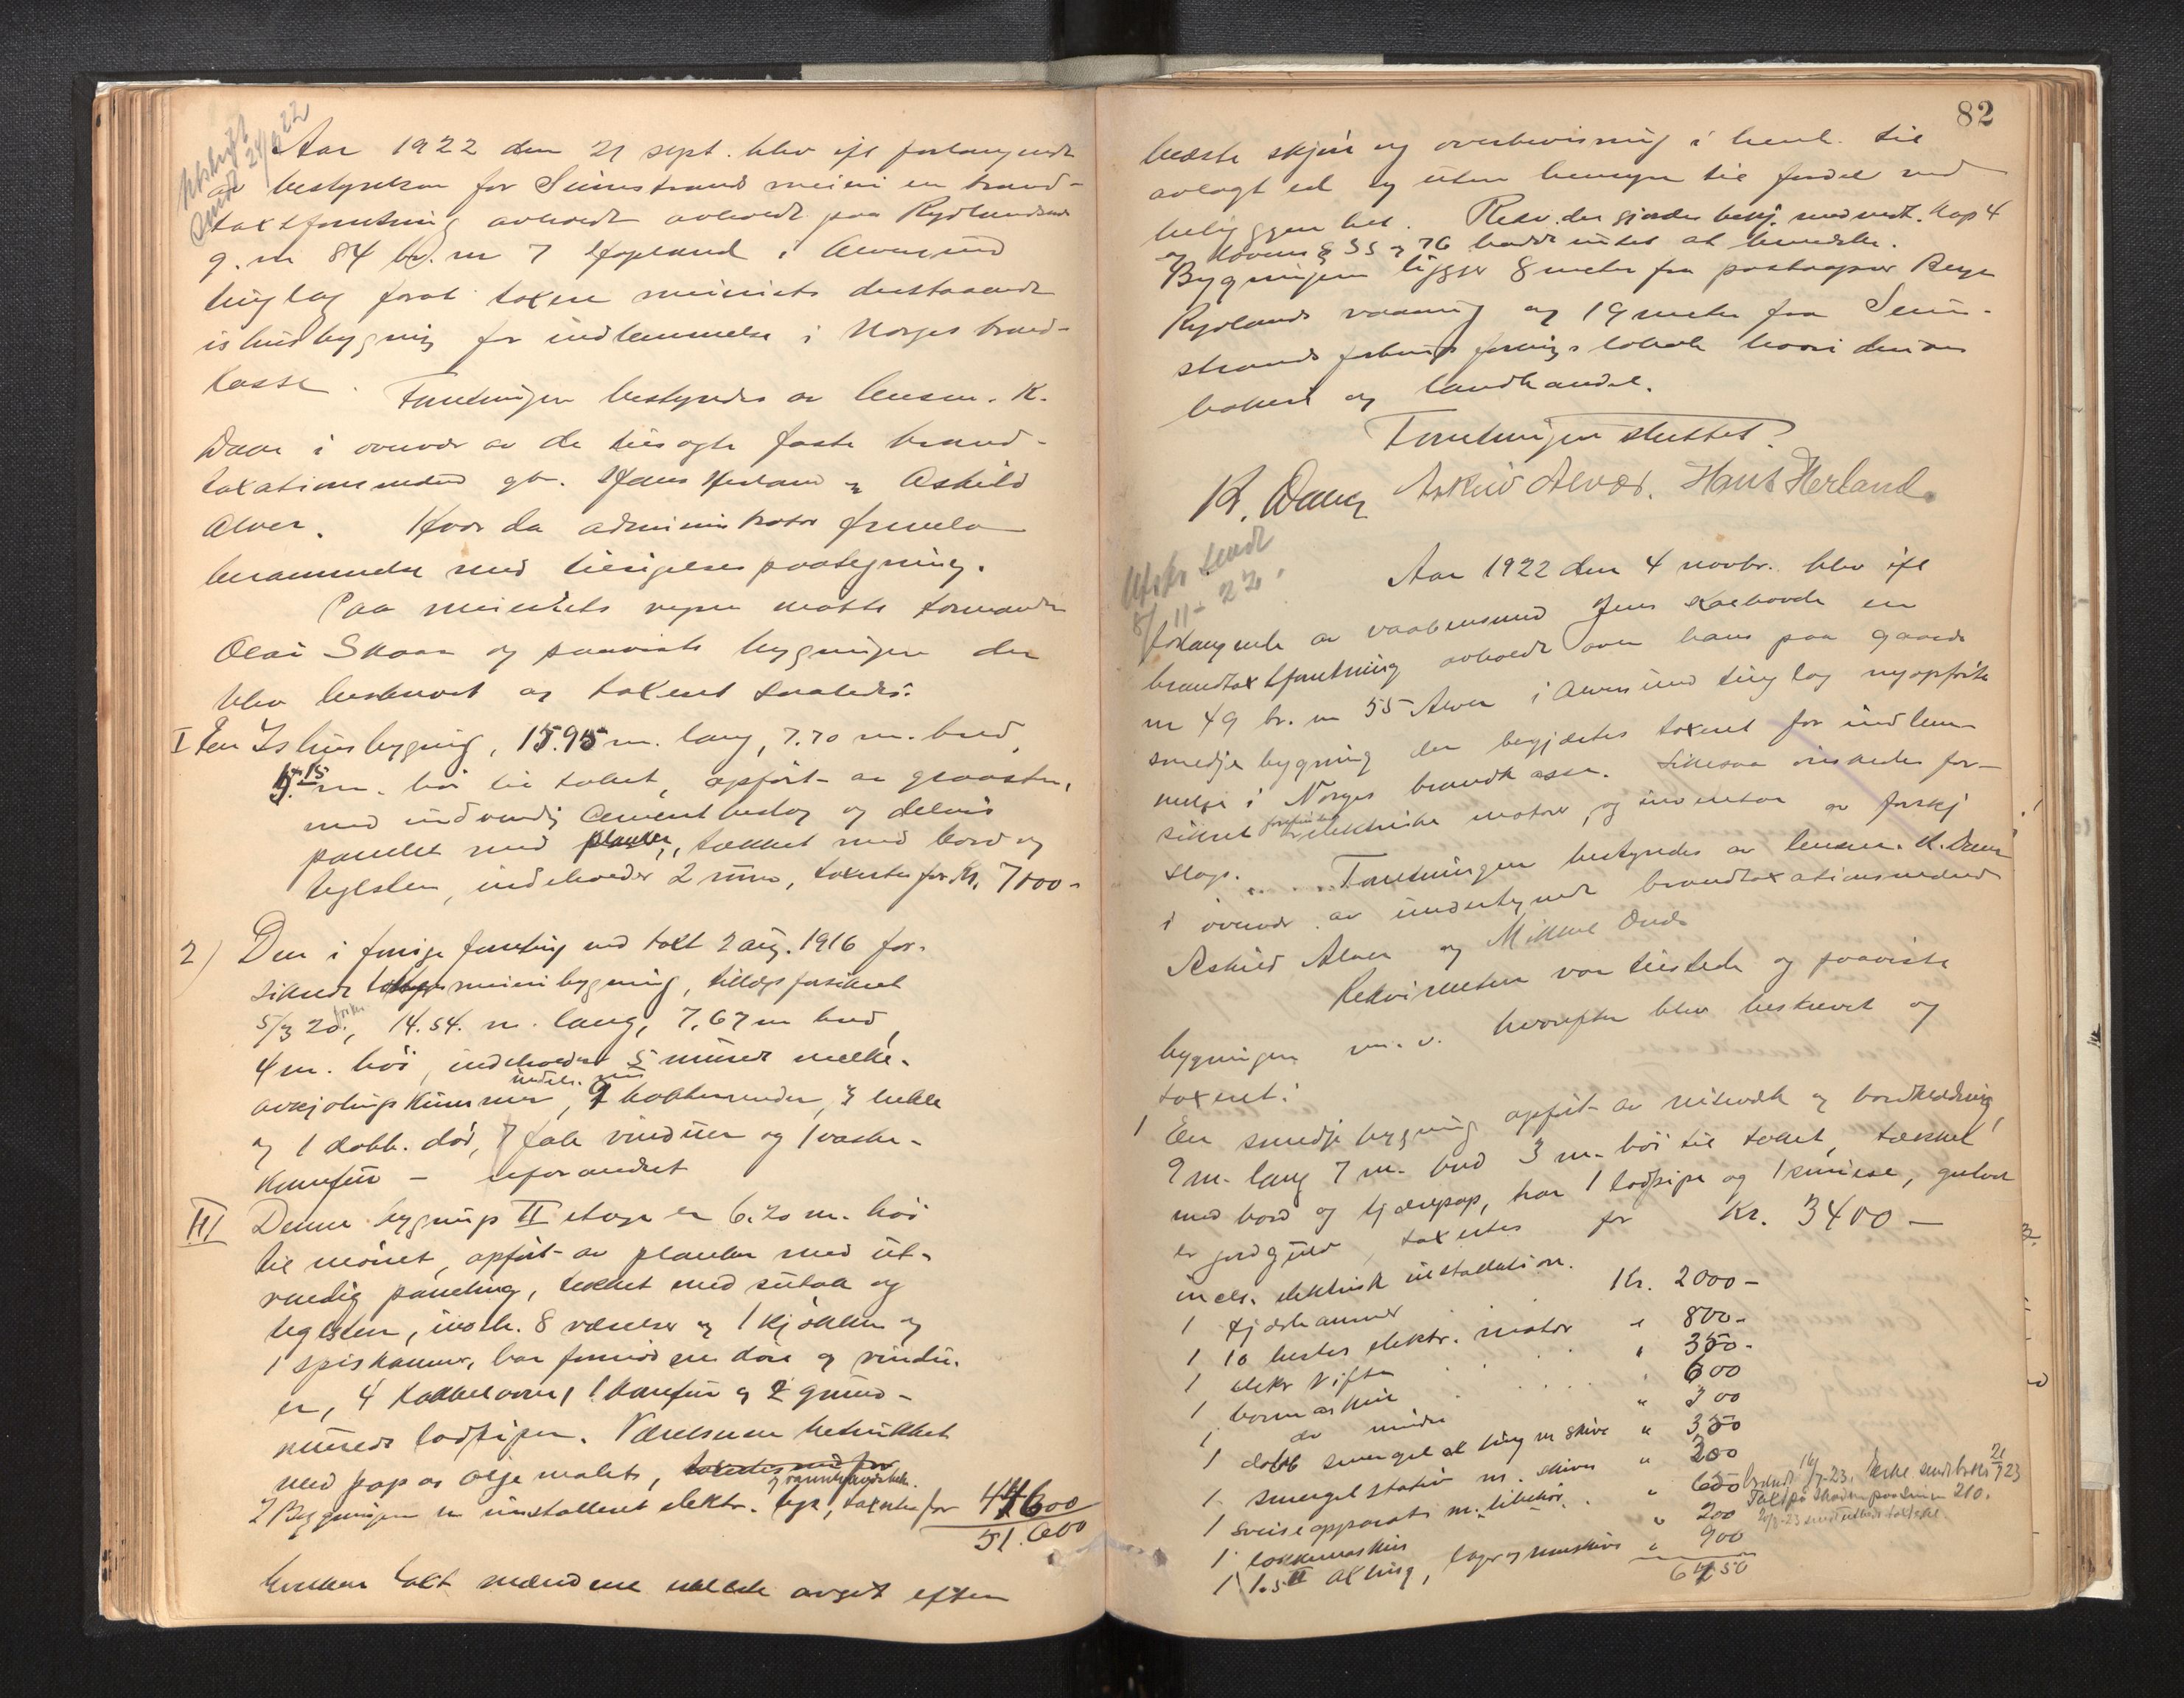 Utskrift
sendt 24/9 22
Aar 1922 den 21 sept. blev ifl forlangende
av bestyrelsen for Seimstrand meieri en brand-
taxtforretning avholdt avholdt paa Rydlandsund
g. nr 84 br. nr 7 Hopland i Alversund
tinglag forat taxere meieriets
ishusbygning for indlemmelse i Norges brand-
kasse. Forretningen bestyredes av lensm. K.
Daae i overvær av de faste brand-
taxationsmænd gb. Hans Herland og Askild
Alver. Hvor da administrator fremla
berammelse med tilsigelsespaategning.
Paa meieriets vegne møtte formanden
Olai Skaar og paaviste bygningen der
blev beskrevet og taxeret saaledes:
I En Ishusbygning, 15.95 m. lang, 7.70 m. bred,
5.15 m. høi til taket, opført av graasten,
med indvendig cementbeslag og delvis
panelet med planker, tækket med bord og
teglsten, indeholder 2 rum, taxertes for Kr. 7000-
2) Den i forrige forretning ved takt 2 aug. 1916 for-
sikrede meieribygning, tillægsforsikret
5/3 20, 14.54. m. lang, 7,67 m bred,
4 m. høi, indeholder 5 murede melke-
avkjølings kummer, 9 kobberruder, 3 enkle
og 1 dobb. dør, 7 fale vinduer og 1 vaske-
komfur – uforandret
III Denne bygnings II etage er 6.20 m. høi
til mønet, opført av planker med ut-
vendig paneling, tækket med sutak og
teglsten, indh. 8 værelser og 1 kjøkken og
1 spiskammer, har fornødne døre og vindu-
er, 4 kakkelovne, 1 komfur og 2 grund-
murede lodpiper. Værelserne betrukket
med pap og oljemalet, taxertes
I Bygningen er installeret elektr. lys, taxertes for 44600
51.600
Hvorken takt mændene hadde avgit efter
82
bedste skjøn og overbevisning i henh. til
avlagt ed og uten hensyn til fordel ved
beliggenhet. Rekv. der gjordes bekj. med vedt. kap 4
og lovens § 35 og 76 hadde intet at bemerke.
Bygningen ligger 8 meter fra postaapner Berge
Rydlands vaaning og 19 meter fra Seim-
strands forbruksforenings lokale hvori drives
bakeri og landhandel.
Forretningen sluttet.
K. Daae Askild Alver. Hans Herland.
Utskr sendt
8/11- 22.
Aar 1922 den 4 novbr. blev ifl
forlangende av vaabensmed Jens en
brandtaxtforretning avholdt over hans paa gaards
nr 49 br. nr 55 Alver i Alversund tinglag nyopførte
smedjebygning der begjærtes taxeret for indlem-
melse i Norges brandkasse. Likesaa ønskedes for-
sikret elektriske motor, og inventar av forskj
slags. Forretningen bestyredes av lensm. K. Daae
i overvær av undertegnede brandtaxationsmænd
Askild Alver og Mikkel
Rekvirenten var tilstede og paaviste
bygningen m. v. hvorefter blev beskrevet og
taxeret:
1 En smedjebygning opført av reisverk og bordklædning,
9 m. lang 7 m. bred 3 m. høi til taket, tækket
med bord og tjærepap, har 1 lodpipe og 1 smiese, gulvet
er jordgulv, taxertes for Kr. 3400 –
incl. elektrisk installation.
1 fjærhammer Kr. 2000 –
1 10 hestes elektr. motor " 800 -
1 elekr vifte " 350 -
1 bormaskin " 600
1 do mindre " 300
1 dobb smergel m skive " 350
1 smergelstativ m. skiver " 200
1 sveiseapparat m. tilbehør " 650
1 lokkemaskin " 200
1 1.5" aksling, lager og remskiver " 900
6450